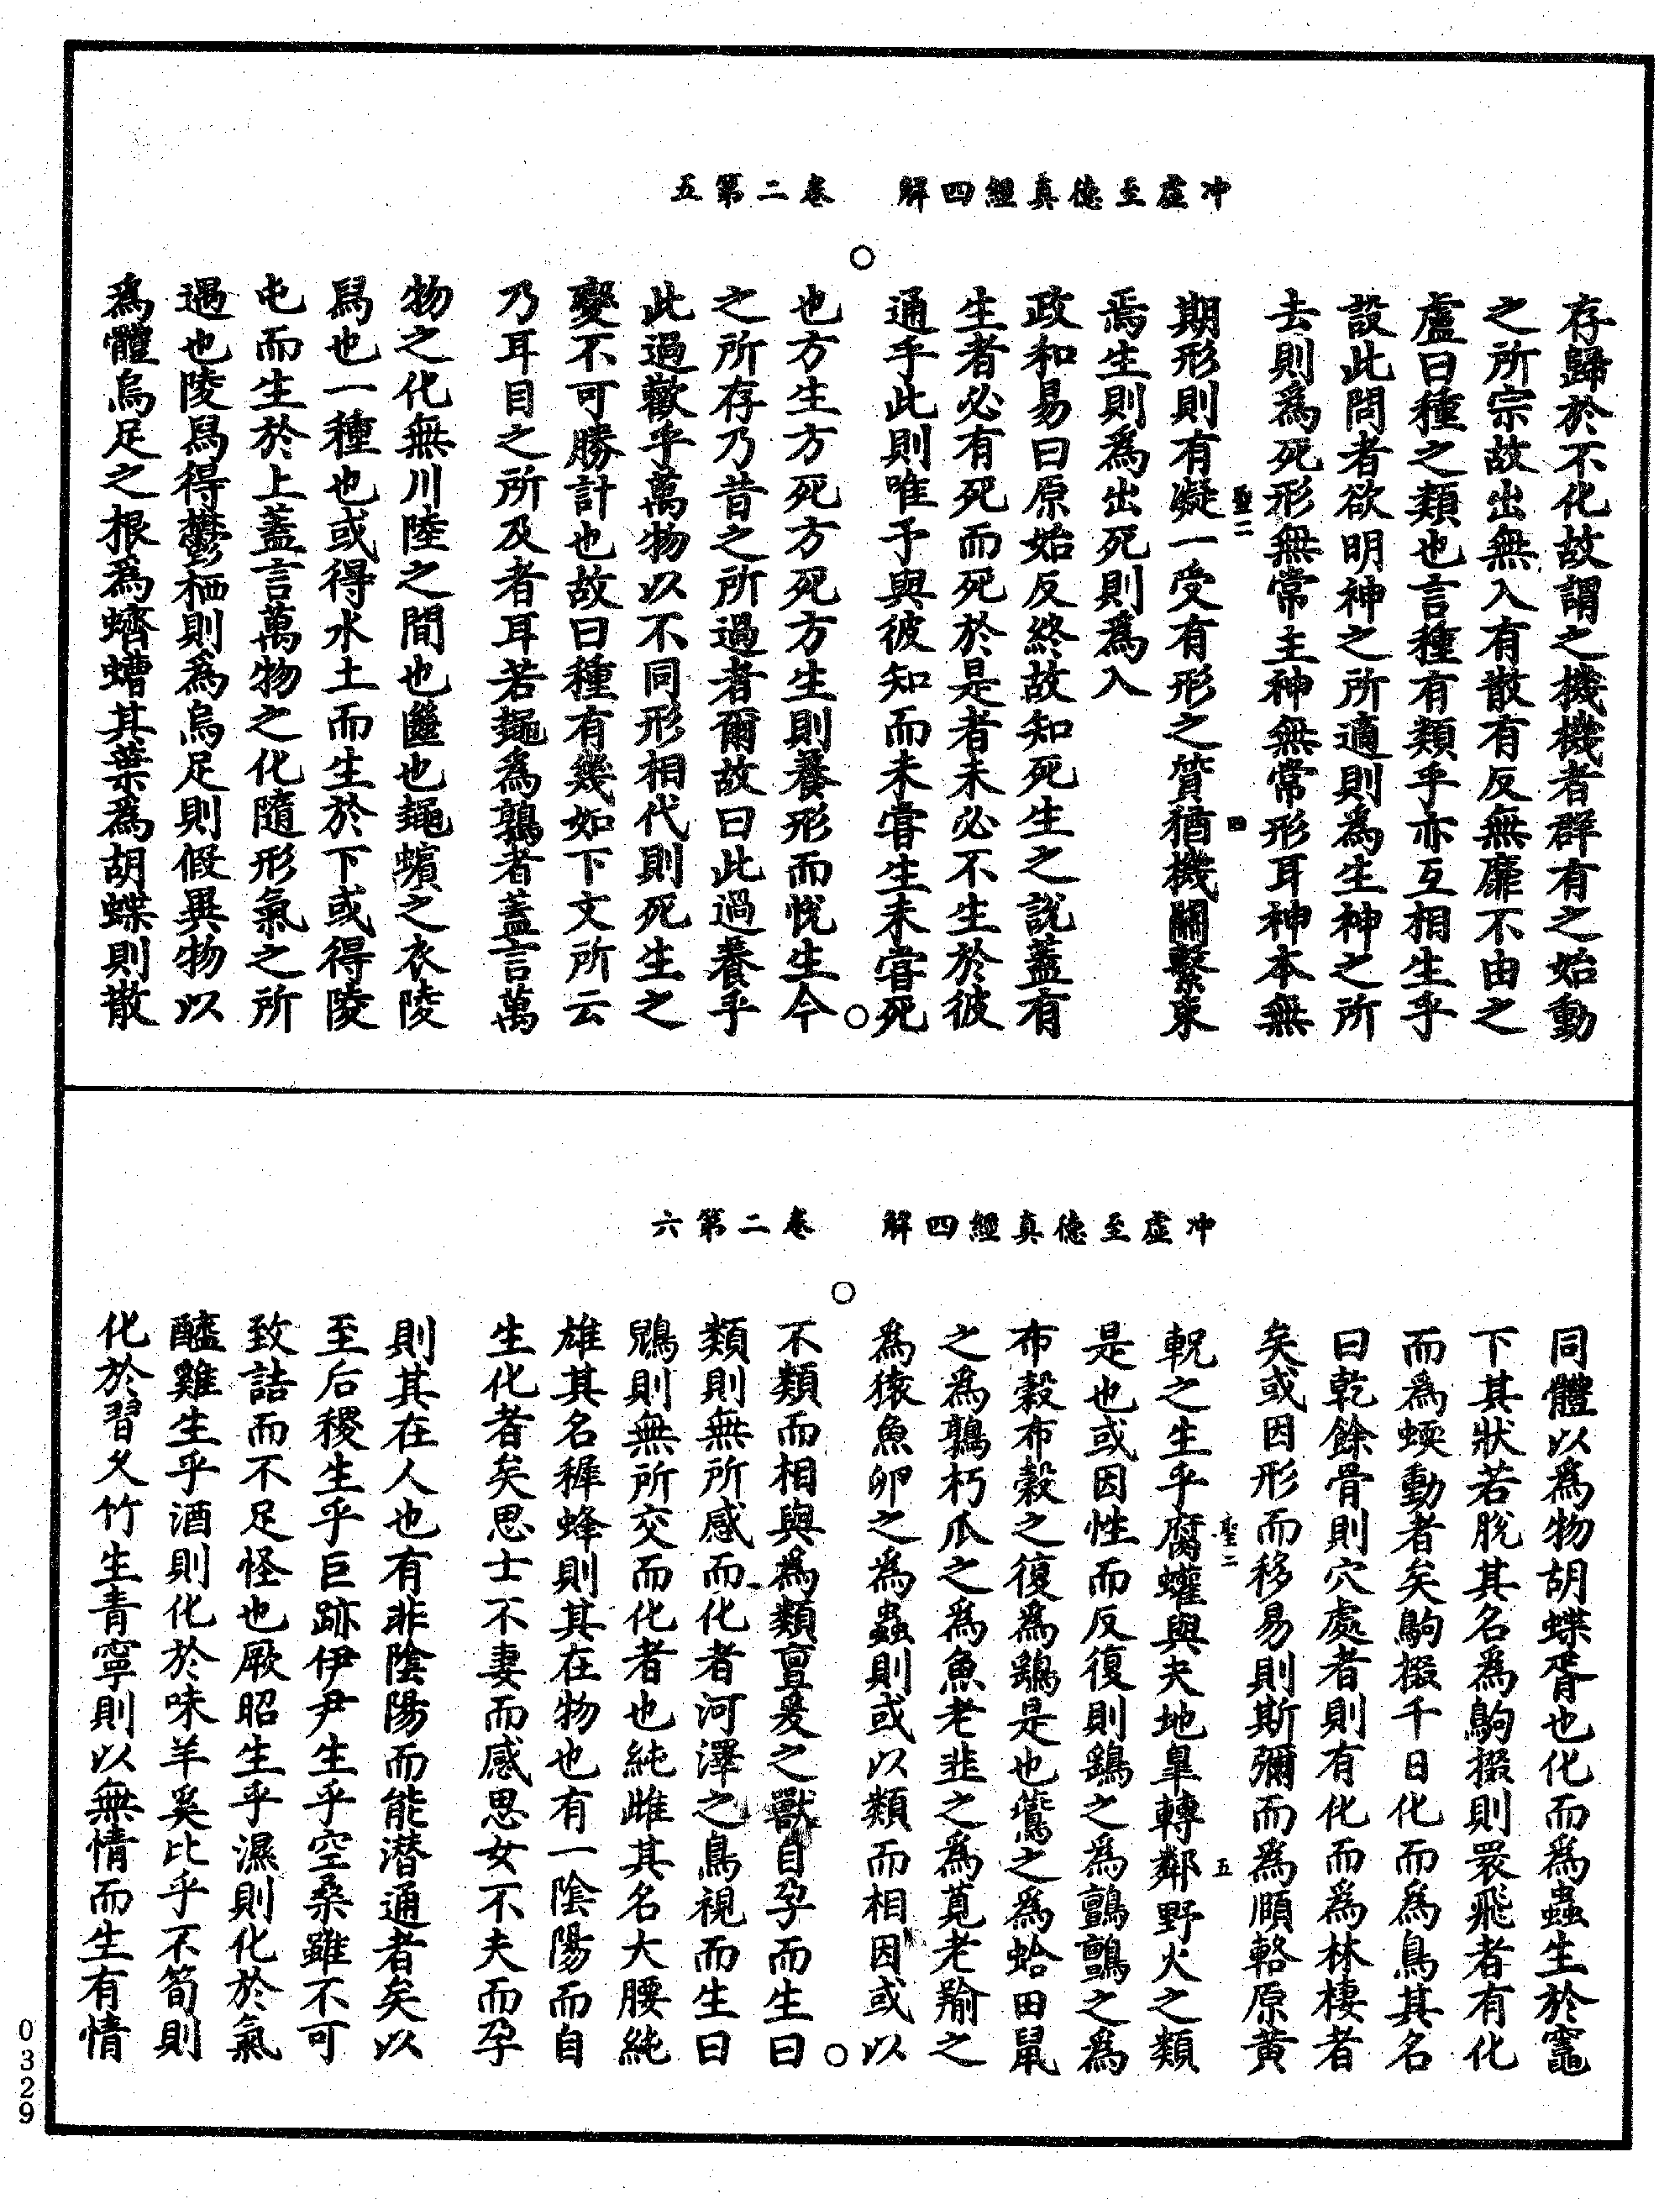 冲虛至德真經四解　卷二第五
存歸於不化故謂之機機者群有之始動
之所宗故出無入有散有反無靡不由之
盧曰種之類也言種有類乎亦互相生乎
設此問者欲明神之所適則為生神之所
去則為死形無常主神無常形耳神本無
聖二　四
期形則有凝一受有形之質猶機關繫束
焉生則為出死則為入
政和易曰原始反終故知死生之說蓋有
生者必有死而死於是者未必不生於彼
通乎此則唯予與彼知而未嘗生未嘗死
也方生方死方死方生則養形而悅生今
之所存乃昔之所過者爾故曰此過養乎
此過歡乎萬物以不同形相代則死生之
變不可勝計也故曰種有幾如下文所云
乃耳目之所及者耳若䵷為鶉者蓋言萬
物之化無川陸之間也㡭也䵷蠙之衣陵
舄也一種也或得水土而生於下或得陵
屯而生於上蓋言萬物之化隨形氣之所
遇也陵舄得鬱栖則為烏足則假異物以
為體烏足之根為蠐螬其葉為胡蝶則散
冲虛至德真經四解　卷二第六
同體以為物胡蝶胥也化而為蟲生於竈
下其狀若脫其名為駒掇則翾飛者有化
而為蝡動者矣駒掇千日化而為鳥其名
曰乾餘骨則穴處者則有化而為林棲者
矣或因形而移易則斯彌而為頤輅原黃
聖二　五
軦之生乎腐蠸與夫地皋轉鄰野火之類
是也或因性而反復則鷂之為鸇鸇之為
布穀布穀之復為鷂是也鷰之為蛤田鼠
之為鶉朽瓜之為魚老韭之為莧老羭之
為猿魚卵之為蟲則或以類而相因或以
不類而相與為類亶爰之獸自孕而生曰
類則無所感而化者河澤之鳥視而生曰
鶂則無所交而化者也純雌其名大腰純
雄其名稺蜂則其在物也有一陰陽而自
生化者矣思士不妻而感思女不夫而孕
則其在人也有非陰陽而能潛通者矣以
至后稷生乎巨跡伊尹生乎空桑雖不可
致詰而不足怪也厥昭生乎濕則化於氣
醯雞生乎酒則化於味羊奚比乎不筍則
化於習久竹生青寧則以無情而生有情
0329